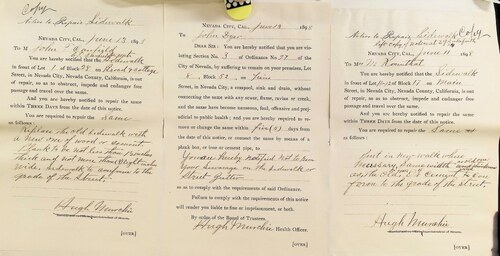 Copy
Notice to Repair Sidewalk
NEVADA CITY, CAL., June 12 1895
To M John T.
You are hereby notified that the Sidewalk
in front of Lot 1 Block 28 on Broad & Cottage
Street, in Nevada City, Nevada County, California, is out
of repair, so as to obstruct, impede and endanger free
passage and travel over the same.
And you are hereby notified to repair the same
within THREE DAYS from the date of this notice.
You are required to repair the same
as follows:
Replace the old sidewalk with
a new one of wood or cement
Plank to be not less than two inches
thick and not more than eight inches
wide, sidewalk to conform to the
grade of the street.
Hugh Murchie
[OVER]
NEVADA CITY, CAL., June 12 1895
To John
DEAR SIR: You are hereby notified that you are vio-
lating Section No. 3 of Ordinance No. 37 of the
City of Nevada, by suffering to remain on your premises, Lot
8, Block 53, on Pine
Street, in Nevada City, a cesspool, sink and drain, without
connecting the same with any sewer, flume, ravine or creek,
and the same have become nauseous, foul, offensive and prej-
udicial to public health; and you are hereby required to re-
move or change the same within five (5) days from the
date of this notice, or connect the same by means of a
plank box, or stone or cement pipe, to
You are hereby notified not to run
your sewerage on the sidewalk or
street gutter
so as to comply with the requirements of said Ordinance.
Failure to comply with the requirements of this notice
will render you liable to fine or imprisonment, or both.
By order of the Board of Trustees.
Hugh Murchie Health Officer.
[OVER]
Copy
Notice to Repair Sidewalk
NEVADA CITY, CAL., June 11 1895
To Mrs M Rosenthal
You are hereby notified that the Sidewalk
in front of Lot Block 18 on Main
Street, in Nevada City, Nevada County, California, is out
of repair, so as to obstruct, impede and endanger free
passage and travel over the same.
And you are hereby notified to repair the same
within THREE DAYS from the date of this notice.
You are required to repair the same
as follows:
Put in new walk where
necessary, same width
as the old, if cement, to con
form to the grade of the street.
Hugh Murchie
[OVER]